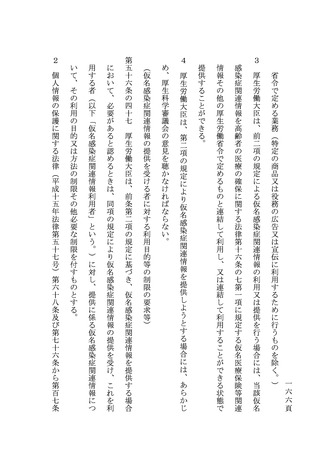 一六六頁
省令で定める業務(特定の商品又は役務の広告又は宣伝に利用するために行うものを除く。)
3 厚生労働大臣は、前二項の規定による仮名感染症関連情報の利用又は提供を行う場合には、当該仮名
感染症関連情報を高齢者の医療の確保に関する法律第十六条の七第一項に規定する仮名医療保険等関連
情報その他の厚生労働省令で定めるものと連結して利用し、又は連結して利用することができる状態で
提供することができる。
4 厚生労働大臣は、第二項の規定により仮名感染症関連情報を提供しようとする場合には、あらかじ
め、厚生科学審議会の意見を聴かなければならない。
(仮名感染症関連情報の提供を受ける者に対する利用目的等の制限の要求等)
第五十六条の四十七 厚生労働大臣は、前条第二項の規定に基づき、仮名感染症関連情報を提供する場合
において、必要があると認めるときは、同項の規定により仮名感染症関連情報の提供を受け、これを利
用する者(以下「仮名感染症関連情報利用者」という。)に対し、提供に係る仮名感染症関連情報につ
いて、その利用の目的又は方法の制限その他必要な制限を付すものとする。
2 個人情報の保護に関する法律(平成十五年法律第五十七号)第六十八条及び第七十六条から第百七条